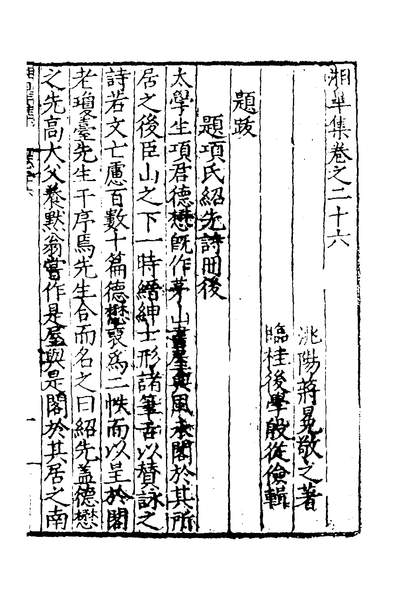 湘皋集卷之二十六
洮陽蔣冕敬之著
臨桂後學殷從儉輯
題跋
題項氏紹先詩冊後
太學生項君德懋既作茅山書屋與風木閣於其所
居之後臣山之下一時縉紳士形諸筆舌以賛詠之
詩若文亡慮百數十篇德懋裒為二帙而以呈於閣
老瓊臺先生干序焉先生合而名之曰紹先盖德懋
之先高大父養默翁嘗作是屋與是閣於其居之南